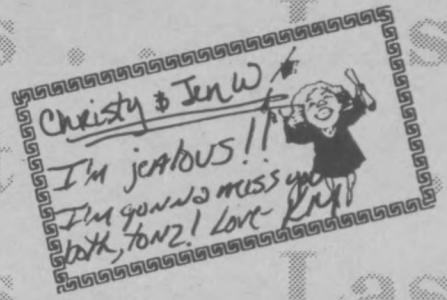 Christy & Jen W
I'm jealous!!
I'm gonna miss you
both, tonz! Love- KM